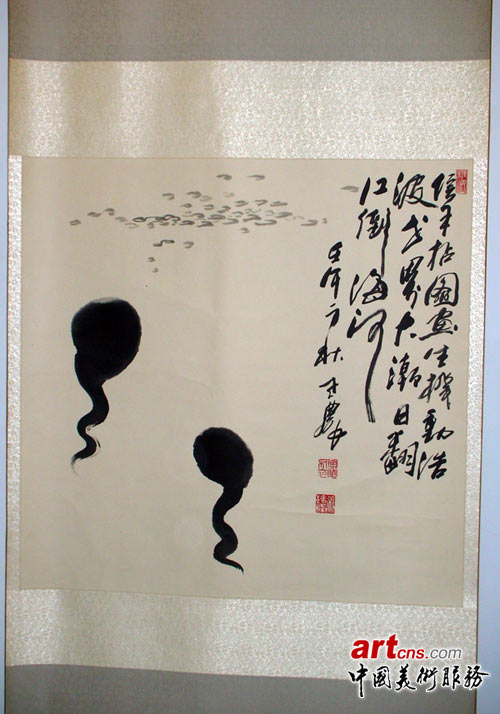 信手拈圖畫生機動浩
波世界大潮日翻
江倒海河
壬午秋
artcns.com
中國美術服務